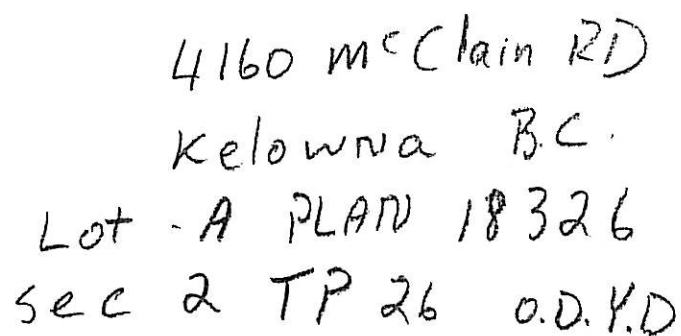 4160 McClain RD
Kelowna B.C.
Lot - A PLAN 18326
sec 2 TP 26 O.D.Y.D